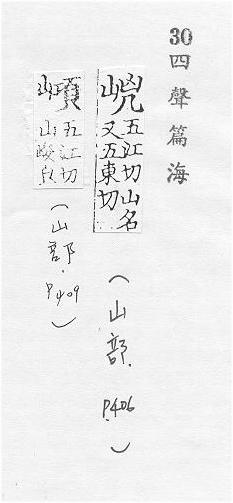 30四聲篇海
五江切山名
又五東切
(山部. P.406.)
五江切
山峻皃
(山部. P.409)